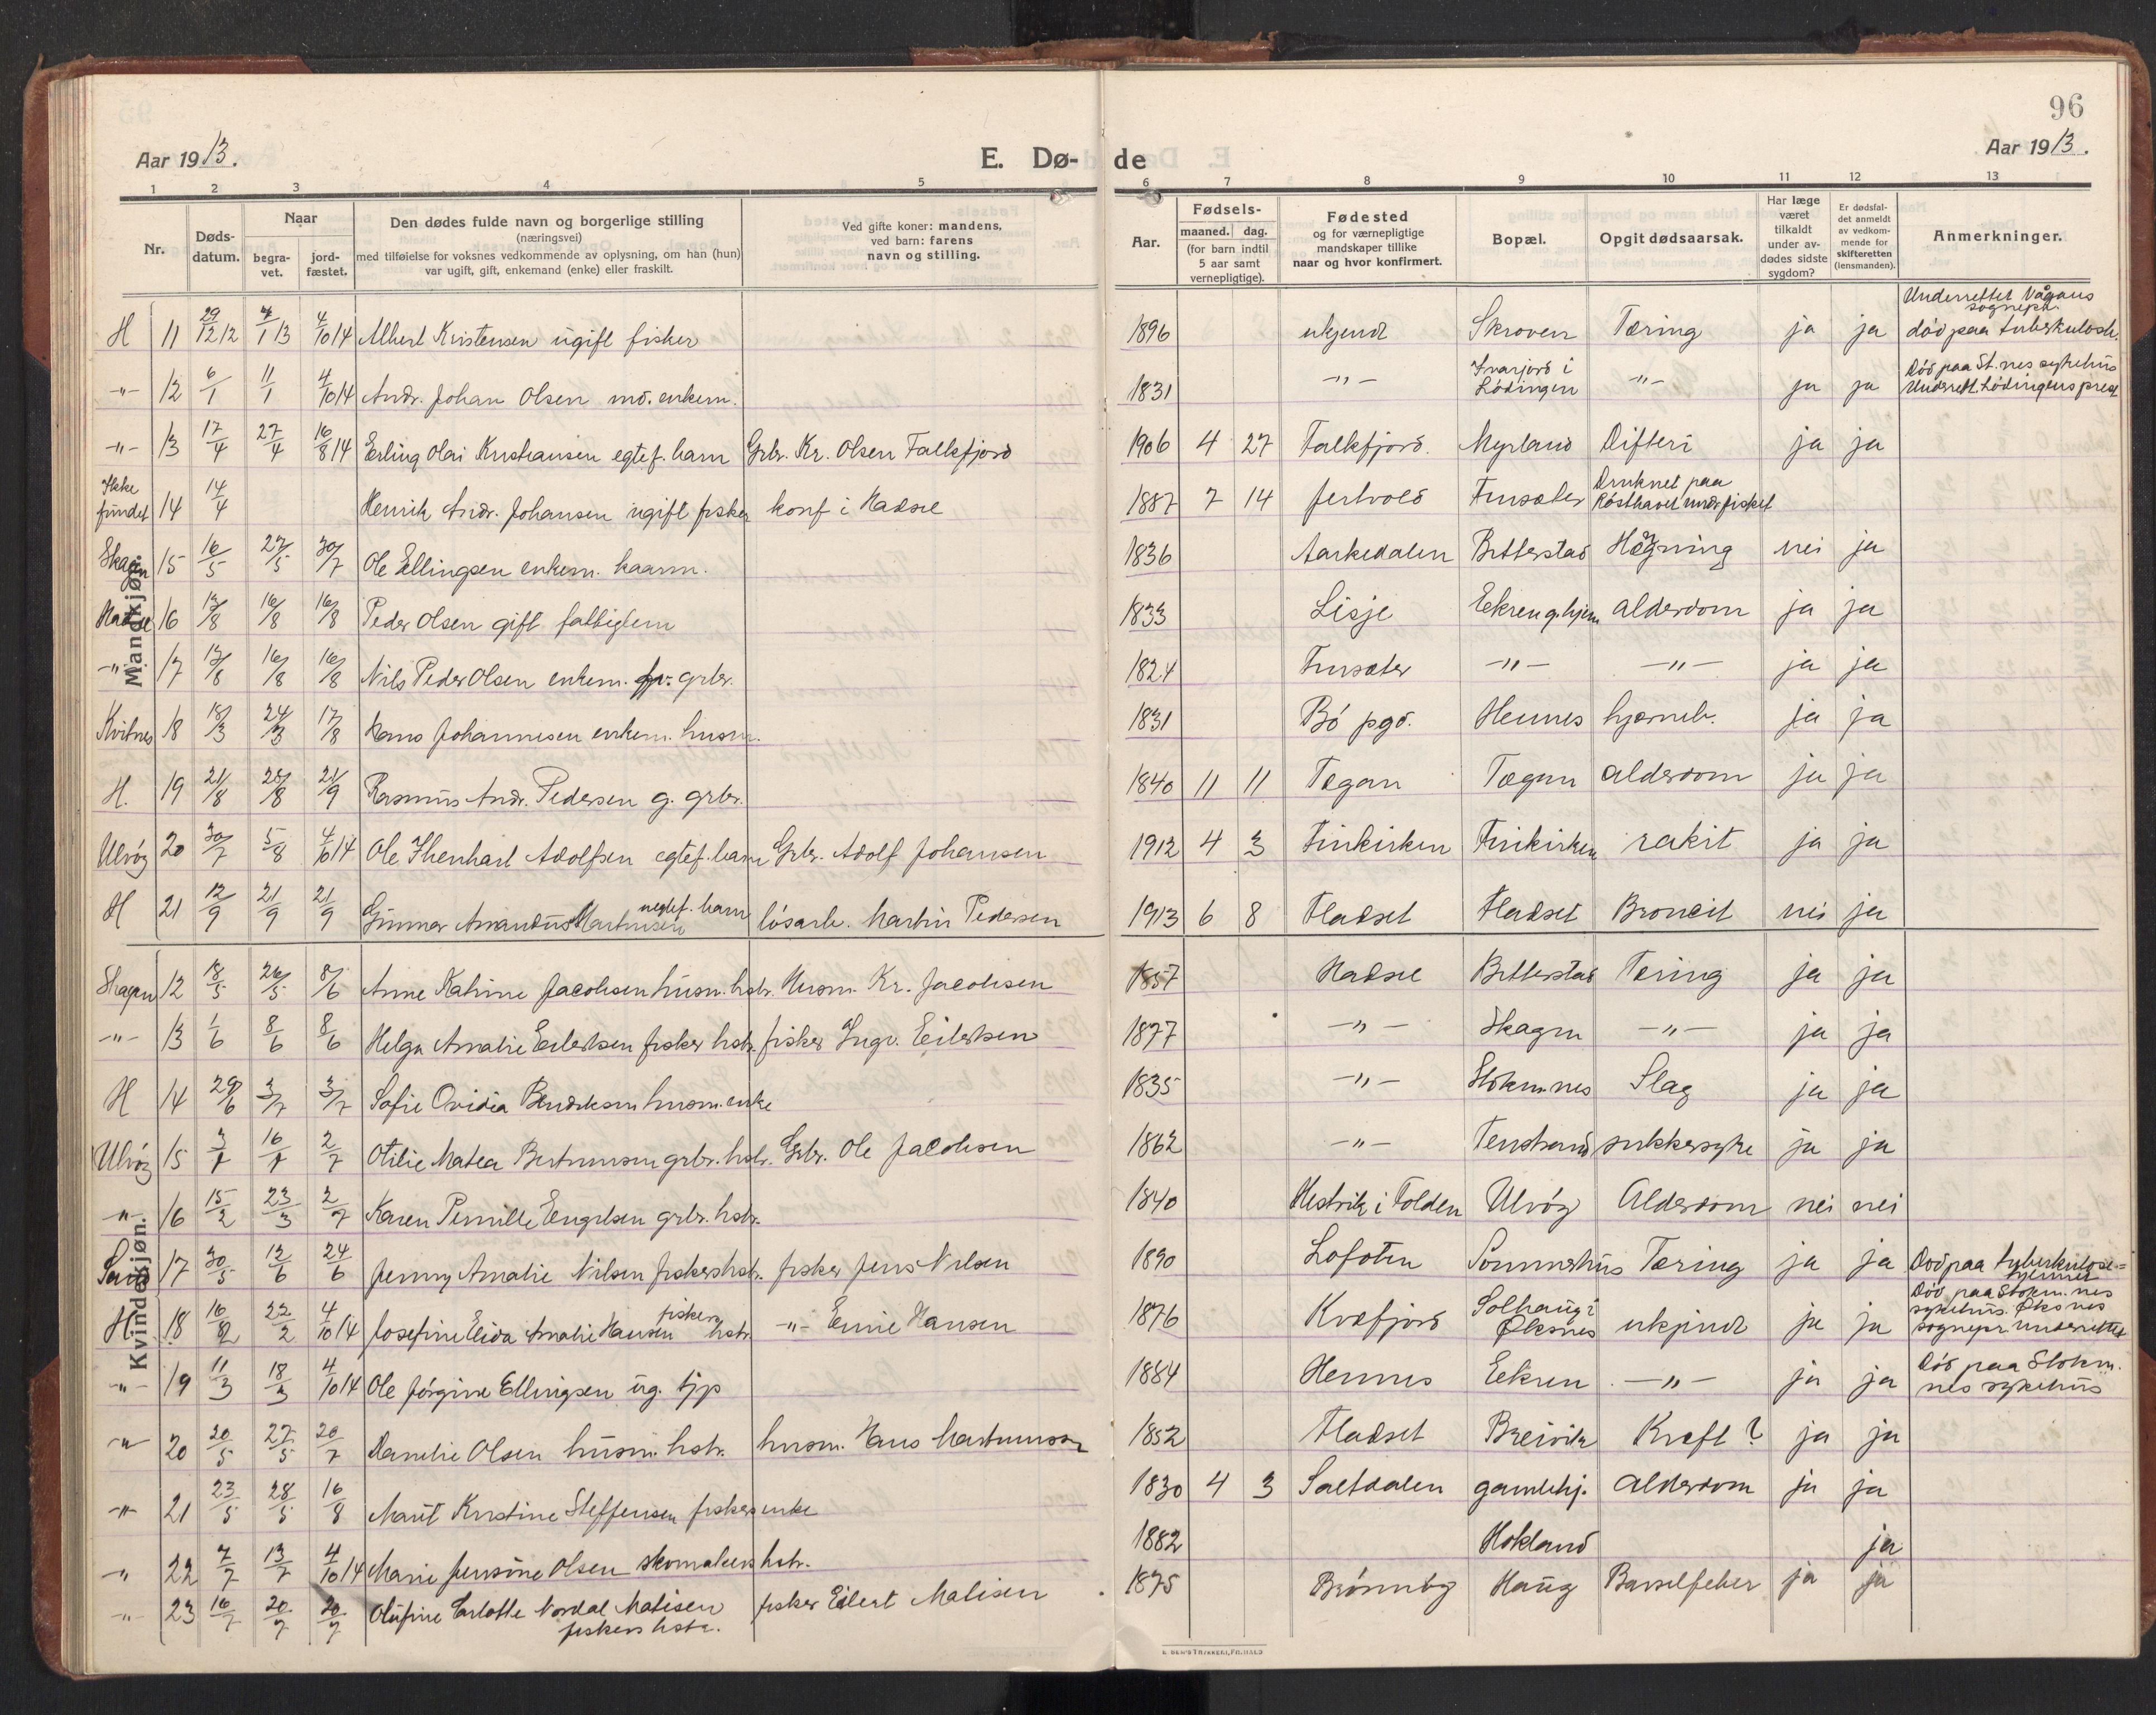 96
Aar 1913.
E. Dø-
de
Aar 1913.
1 2 3 4 5 6 7 8 9 10 11 12 13
Nr.
Døds-
datum.
Naar
begra-
vet.
jord-
fæstet.
Den dødes fulde navn og borgerlige stilling
(næringsvei)
med tilføielse for voksnes vedkommende av oplysning, om han (hun)
var ugift, gift, enkemand (enke) eller fraskilt.
Ved gifte koner: mandens,
ved barn: farens
navn og stilling.
Aar.
Fødsels-
maaned. dag.
(for barn indtil
5 aar samt
vernepligtige).
Fødested
og for værnepligtige
mandskaper tillike
naar og hvor konfirmert.
Bopæl.
Opgit dødsaarsak.
Har læge
været
tilkaldt
under av-
dødes sidste
sygdom?
Er dødsfal-
det anmeldt
av vedkom-
mende for
skifteretten
(lensmanden).
Anmerkninger.
Mandkjøn.
H 11 29/12 12 4/1 13 4/10 14 Albert Kristensen ugift fisker 1896 ukjendt Skroven Tæring ja ja Underrettet Vågans sognepr. död paa tuberkulosh.
-"- 12 6/1 11/1 4/10 14 Andr. Johan Olsen enkem. 1831 -"- i Lödingen -"- ja ja Död paa St.nes sykehus Underrett. Lödingens prest
-"- 13 17/4 27/4 16/8 14 Erling Olai Kristiansen egtef. barn Grbr. Kr. Olsen Falkfjord 1906 4 27 Falkfjord. Myrland Difteri ja ja
Ikke fundet 14 14/4 Henrik Andr. Johansen ugift fisker konf i Hadsel 1887 7 14 Frusæter Druknet paa Rösthavet under fisket
Skagen 15 16/5 27/5 30/7 Ole Ellingsen enkem. kaarm. 1836 Aarkedalen Bitterstad nei ja
Hadsel 16 13/8 16/8 16/8 Peder Olsen gift fattiglem 1833 Lisje Eekren g.hjem alderdom ja ja
-"- 17 13/8 16/8 16/8 Nils Peder Olsen enkem. grbr. 1824 Frusæter -"- -"- ja ja
Kvitnes 18 18/3 24/3 17/8 Hans Johannesen enkem. husm. 1831 Bö pgd. Hennes hjerneb. ja ja
H. 19 21/8 28/8 21/9 Rasmus Andr. Pedersen g. grbr. 1840 11 11 Tøgan Tøgan alderdom ja ja
Ulvöy 20 30/7 5/8 4/10 14 Ole Adolfsen egtef. barn Grbr. Adolf Johansen 1912 4 3 Finkirken Finkirken rakit ja ja
H 21 12/9 21/9 21/9 Gunnar Amandus Martinsen uegtef. barn lösarb. Martin Pedersen 1913 6 8 Fladset Fladset Broncit nei ja
Kvindekjøn.
Skagen 12 18/5 26/5 8/6 Anne Katrine Jacobsen husm. hstr. Husm. Kr. Jacobsen 1857 Hadsel Bitterstad Tæring ja ja
-"- 13 1/6 8/6 8/6 Helga Amalie Eilertsen fisker hstr. fisker Ingv. Eilertsen 1877 -"- Skagen -"- ja ja
H 14 29/6 3/7 3/7 Sofie Ovidia Bendiksen husm. enke 1835 -"- Stokm.nes Slag ja ja
Ulvöy 15 Otilie Matea Bertninsen grbr. hstr. Grbr. Ole Jacobsen 1862 -"- Tenstrand sukkersyke ja ja
-"- 16 15/2 23/3 2/7 Karen Pernille Eengelsen grbr. hstr. 1840 i Folden Ulvöy Alderdom nei nei
Sand 17 30/5 12/6 24/6 Jenny Amalie Nilsen fiskershstr. fisker Jens Nilsen 1890 Lofoten Sommerhus Tæring ja ja Död paa tuberkulose=hjemmet
H. 18 16/2 22/2 4/10 14 Josefine Elida Amalie Hansen fiskers hstr. -"- Hansen 1876 Kvæfjord Solhaug i Öksnes ukjendt ja ja Död paa Stokm.nes sykehus. Öksnes sognepr. underrettet
-"- 19 11/3 18/3 4/10 14 Ole Jörgine Ellingsen ug. tjp 1884 Hennes Eekren -"- ja ja Död paa Stokm.nes sykehus
-"- 20 20/5 27/5 20/7 Olsen husm. hstr. husm. Hans Martinussen 1852 Fladset Breivik Kræft? ja ja
-"- 21 23/5 28/5 16/8 Marit Kristine Steffensen fiskers enke 1830 4 3 Saltdalen gamlehj. alderdom ja ja
-"- 22 7/7 13/7 4/10 14 Marie Jensine Olsen skomakers hstr. 1882 Hokland ja
-"- 23 16/7 20/7 20/7 Olufine Carlotte Nordal Matisen fiskers hstr. fisker Eilert Matisen 1875 Brönnöy Haug Barselfeber ja ja